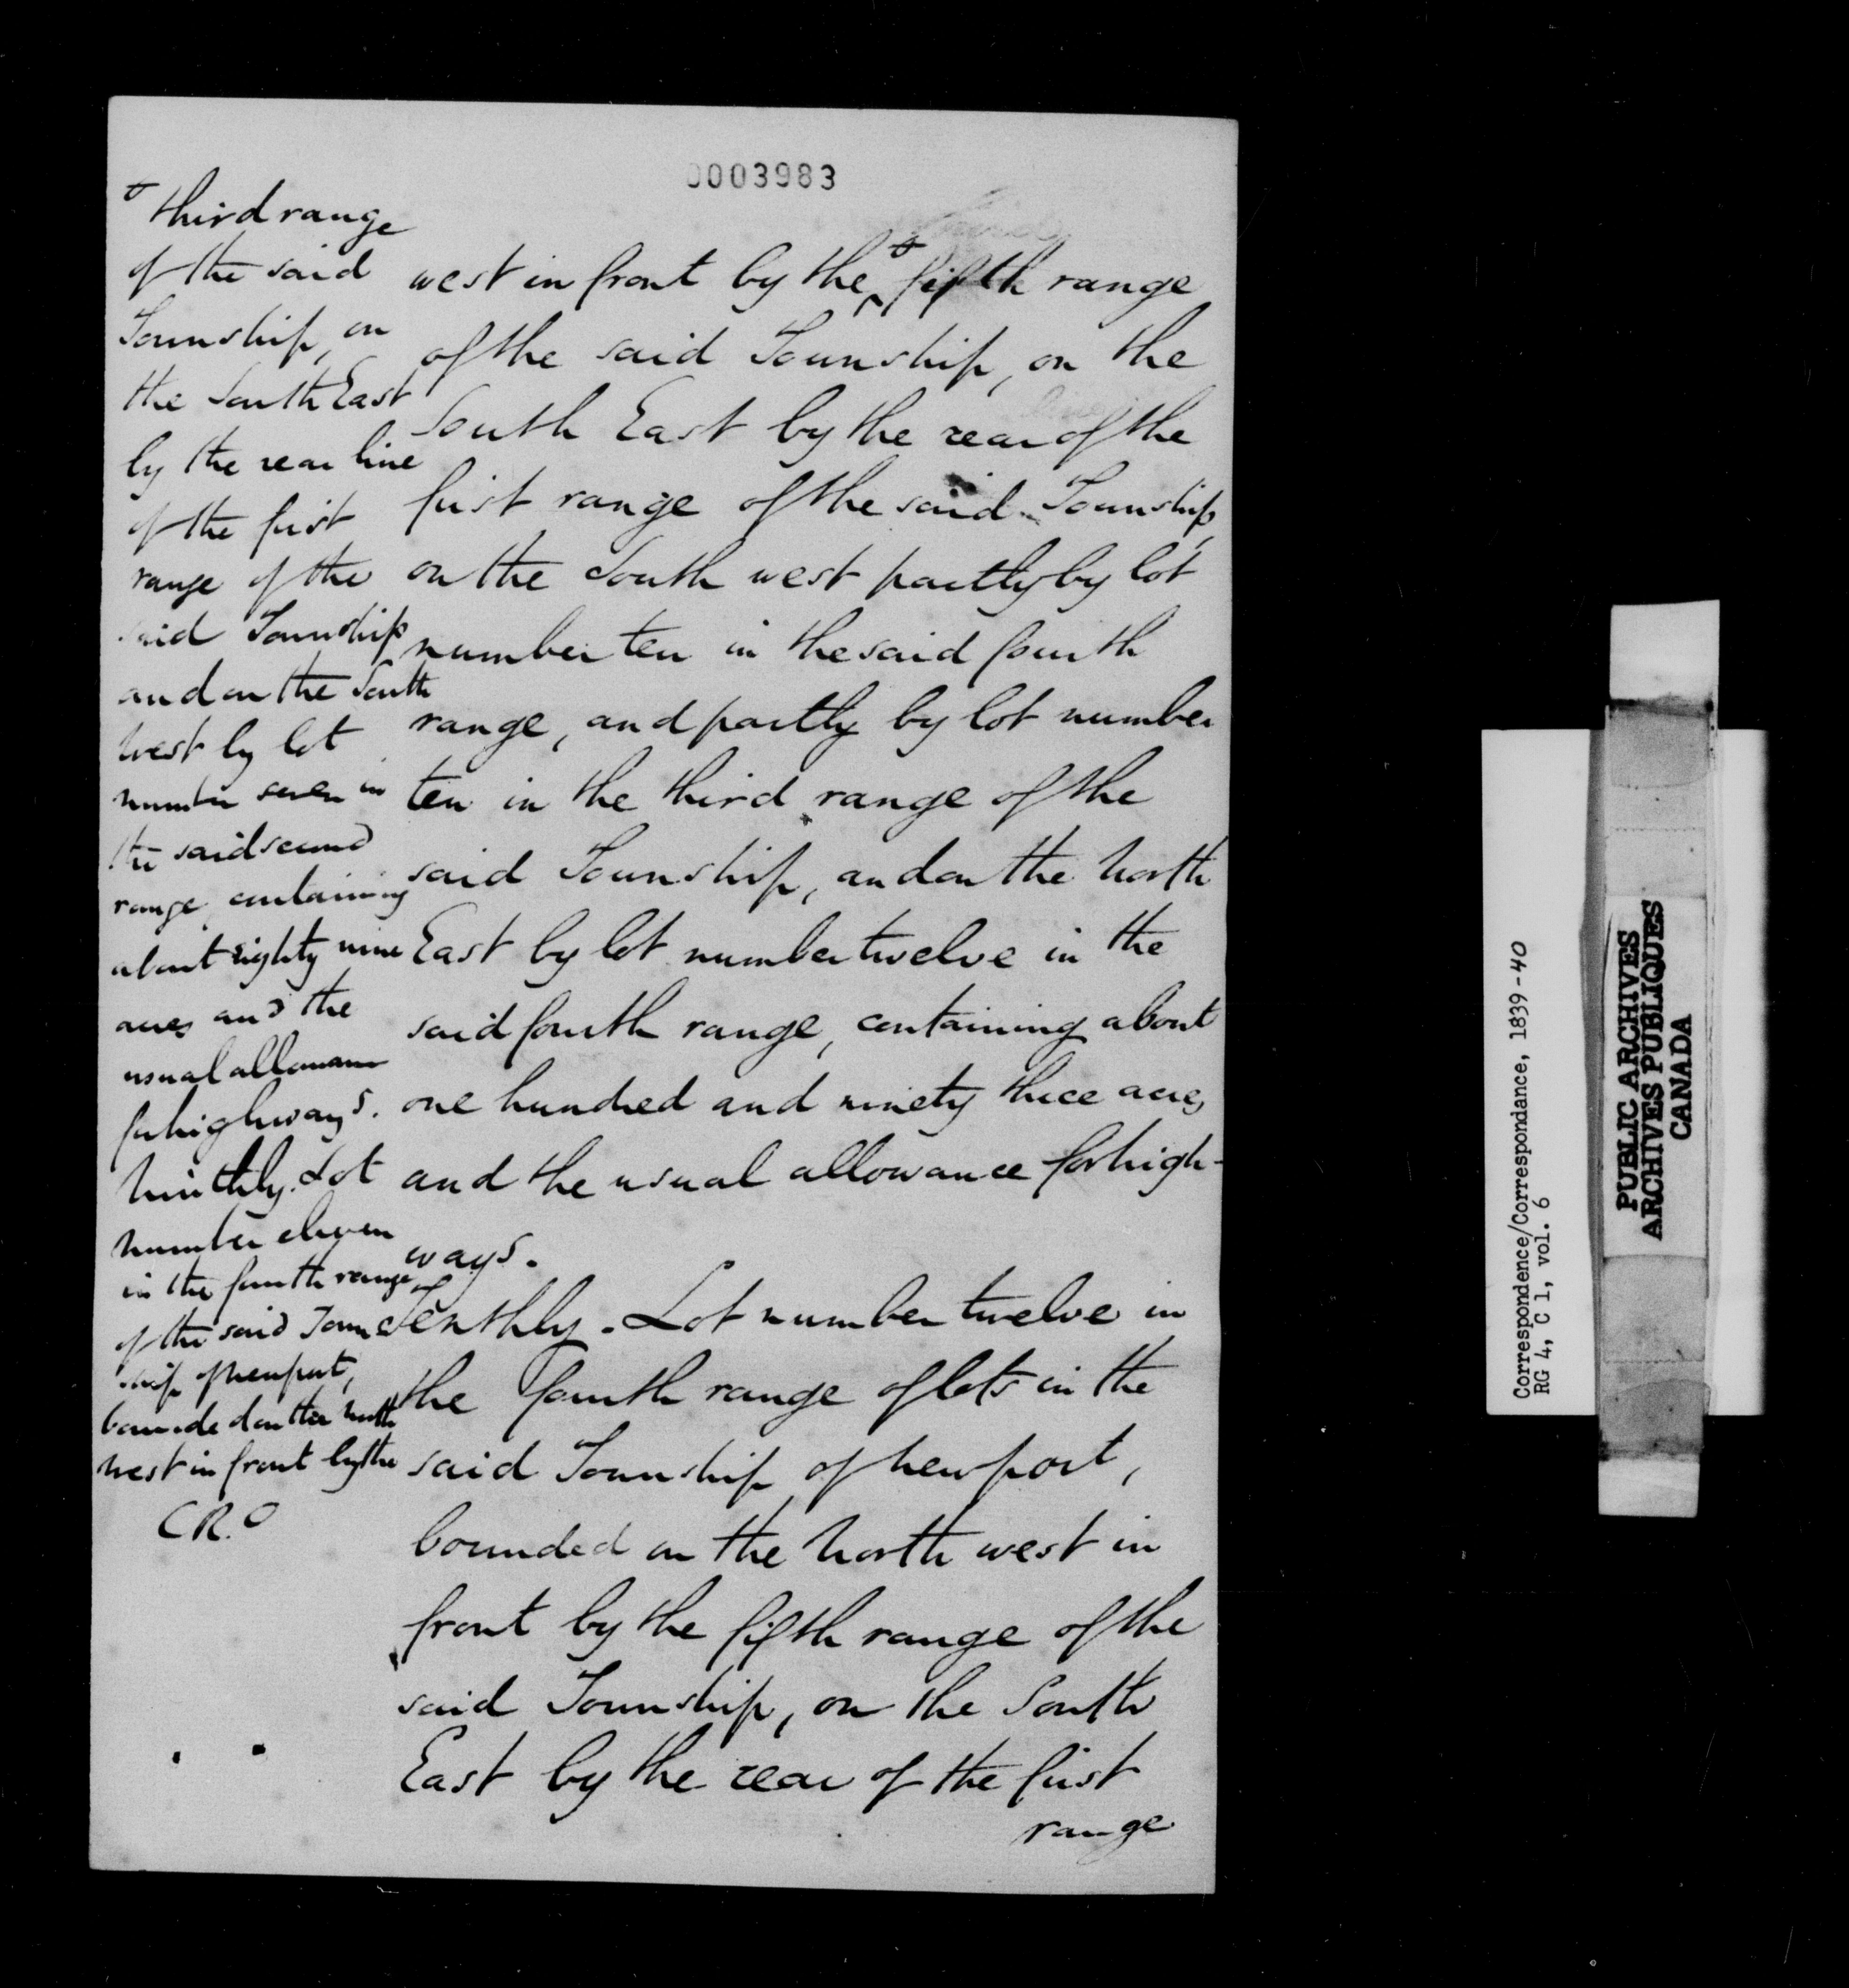 0003983
third range
of the said
Township, on
the South East
by the rear line
of the first
range of the
said Township
and on the South
West by lot
number seven in
the said second
range, containing
about eighty nine
acres and the
usual allowance
for highways.
Ninthly. Lot
number eleven
in the fourth range
of the said Town
ship of Newport,
bounded on the North
west in front by the
C.R.O
west in front by the fifth range
of the said Township, on the
South East by the rear of the
first range of the said Township,
on the South west partly by lot
number ten in the said fourth
range, and partly by lot number
ten in the third range of the
said Township, and on the North
East by lot number twelve in the
said fourth range, containing about
one hundred and ninety three acres
and the usual allowance for high-
ways.
Tenthly. Lot number twelve in
the fourth range of lots in the
said Township of Newport,
bounded on the North west in
front by the fifth range of the
said Township, on the South
East by the rear of the first
range
Correspondence/Correspondance, 1839-40
RG 4, C 1, vol. 6
PUBLIC ARCHIVES
ARCHIVES PUBLIQUES
CANADA